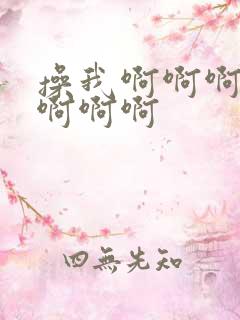 操我 啊啊啊
啊啊啊
四無先知